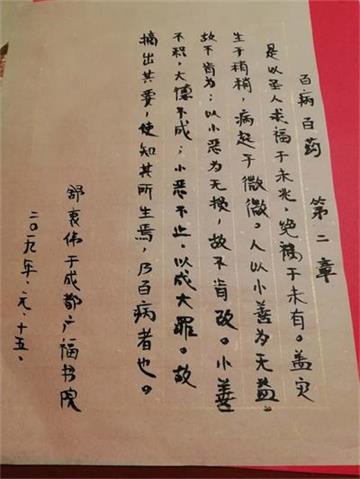 百病百药 第二章
是以圣人求福于未兆，绝祸于未有。盖灾
生于稍稍，病起于微微。人以小善为无益，
故不肯为；以小恶为无损，故不肯改。小善
不积，大德不成；小恶不止，以成大罪。故
摘出其要，使知其所生焉，乃百病者也。
舒衷伟于成都广福书院
二〇一九年、元、十五、